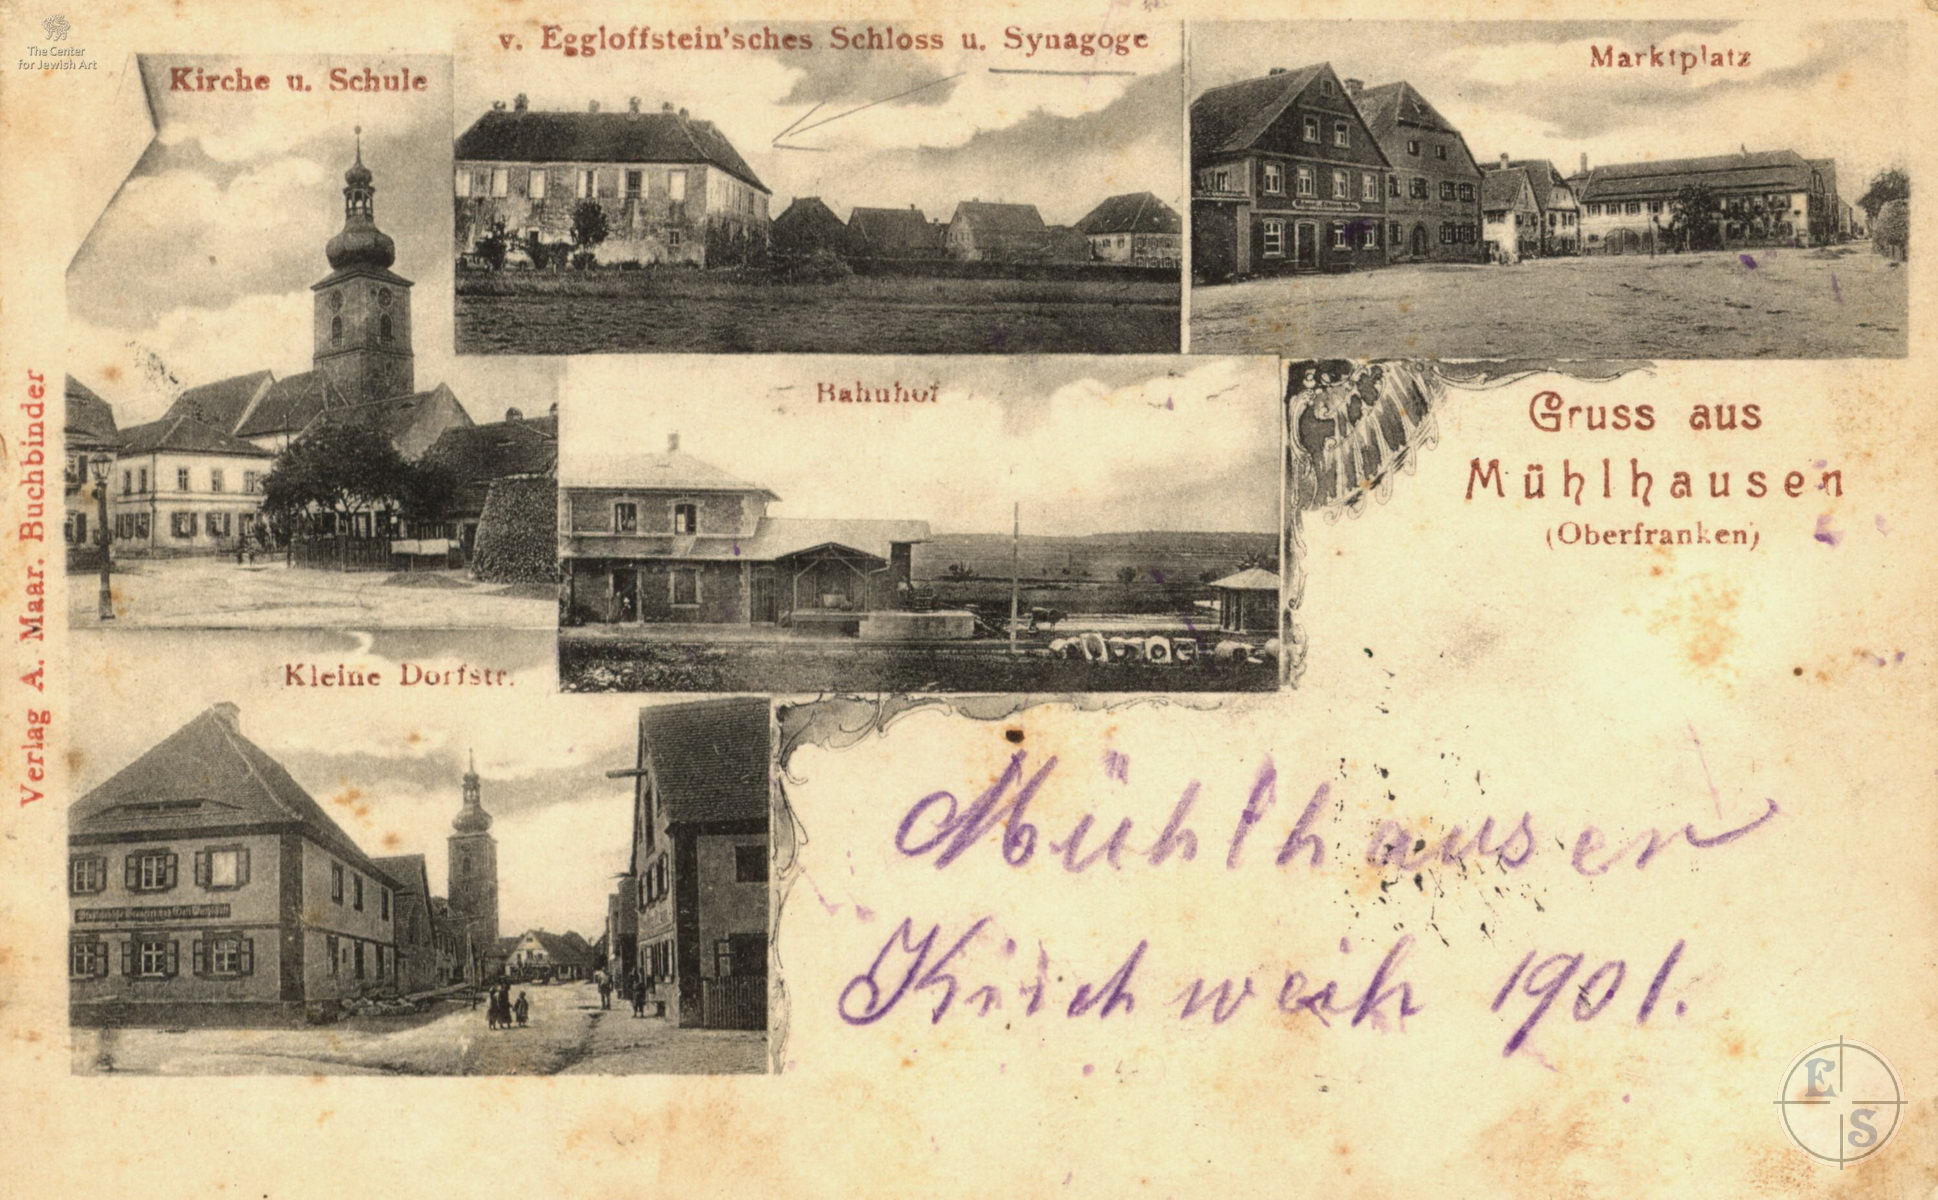 The Center
for Jewish Art
Kirche u. Schule
v. Eggloffstein'sches Schloss u. Synagoge
Marktplatz
Bahnhof
Gruss aus
Mühlhausen
(Oberfranken)
Kleine Dorfstr.
Verlag A. Maar. Buchbinder
Mühlhausen
Kirchweih 1901.
E
S